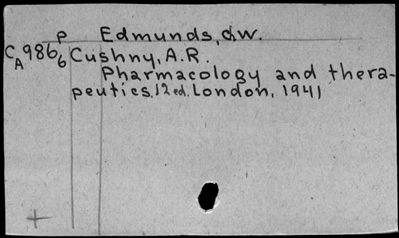 P Edmunds, C.W.
CA986 6 Cushny, A.R.
Pharmacology and thera-
peutics. 12 ed. London, 1941